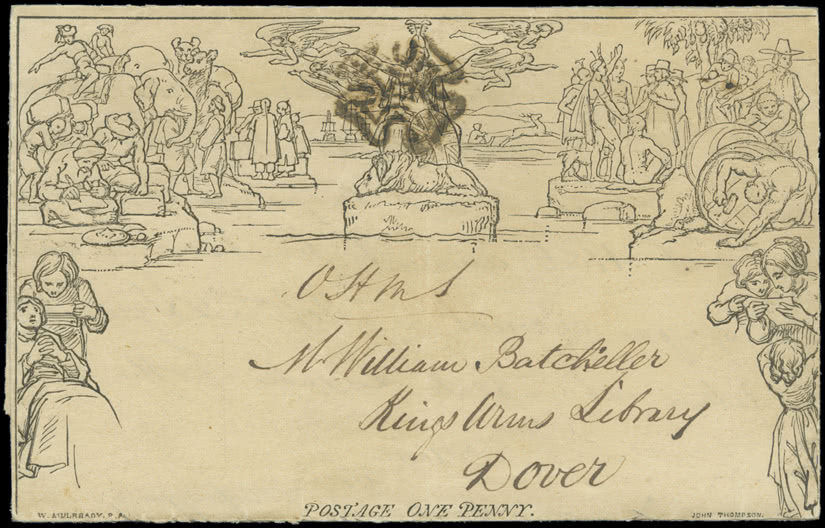 O H M S
Mr William Batcheller
Kings Arms Library
Dover
W. MULREADY, R.A.
POSTAGE ONE PENNY.
JOHN THOMPSON.